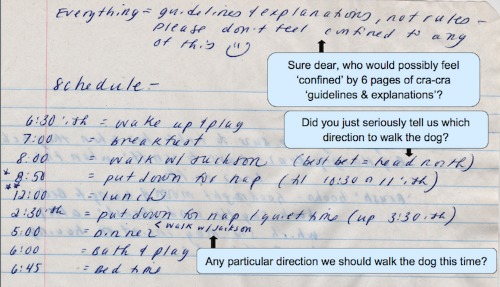 Everything = guidelines & explanations, not rules -
please don't feel confined to any
of this
Sure dear, who would possibly feel
'confined' by 6 pages of cra-cra
'guidelines & explanations'?
Schedule -
Did you just seriously tell us which
direction to walk the dog?
6:30 ith = wake up & play
7:00 = breakfast
8:00 = walk w/ Jackson (best bet = head north)
* 8:50 = put down for nap (til 10:30 or 11 ith)
** 12:00 = lunch
2:30 ith = put down for nap / quiet time (up 3:30 ith)
5:00 = dinner & walk w/ Jackson
6:00 = Bath & play
6:45 = Bed time
Any particular direction we should walk the dog this time?